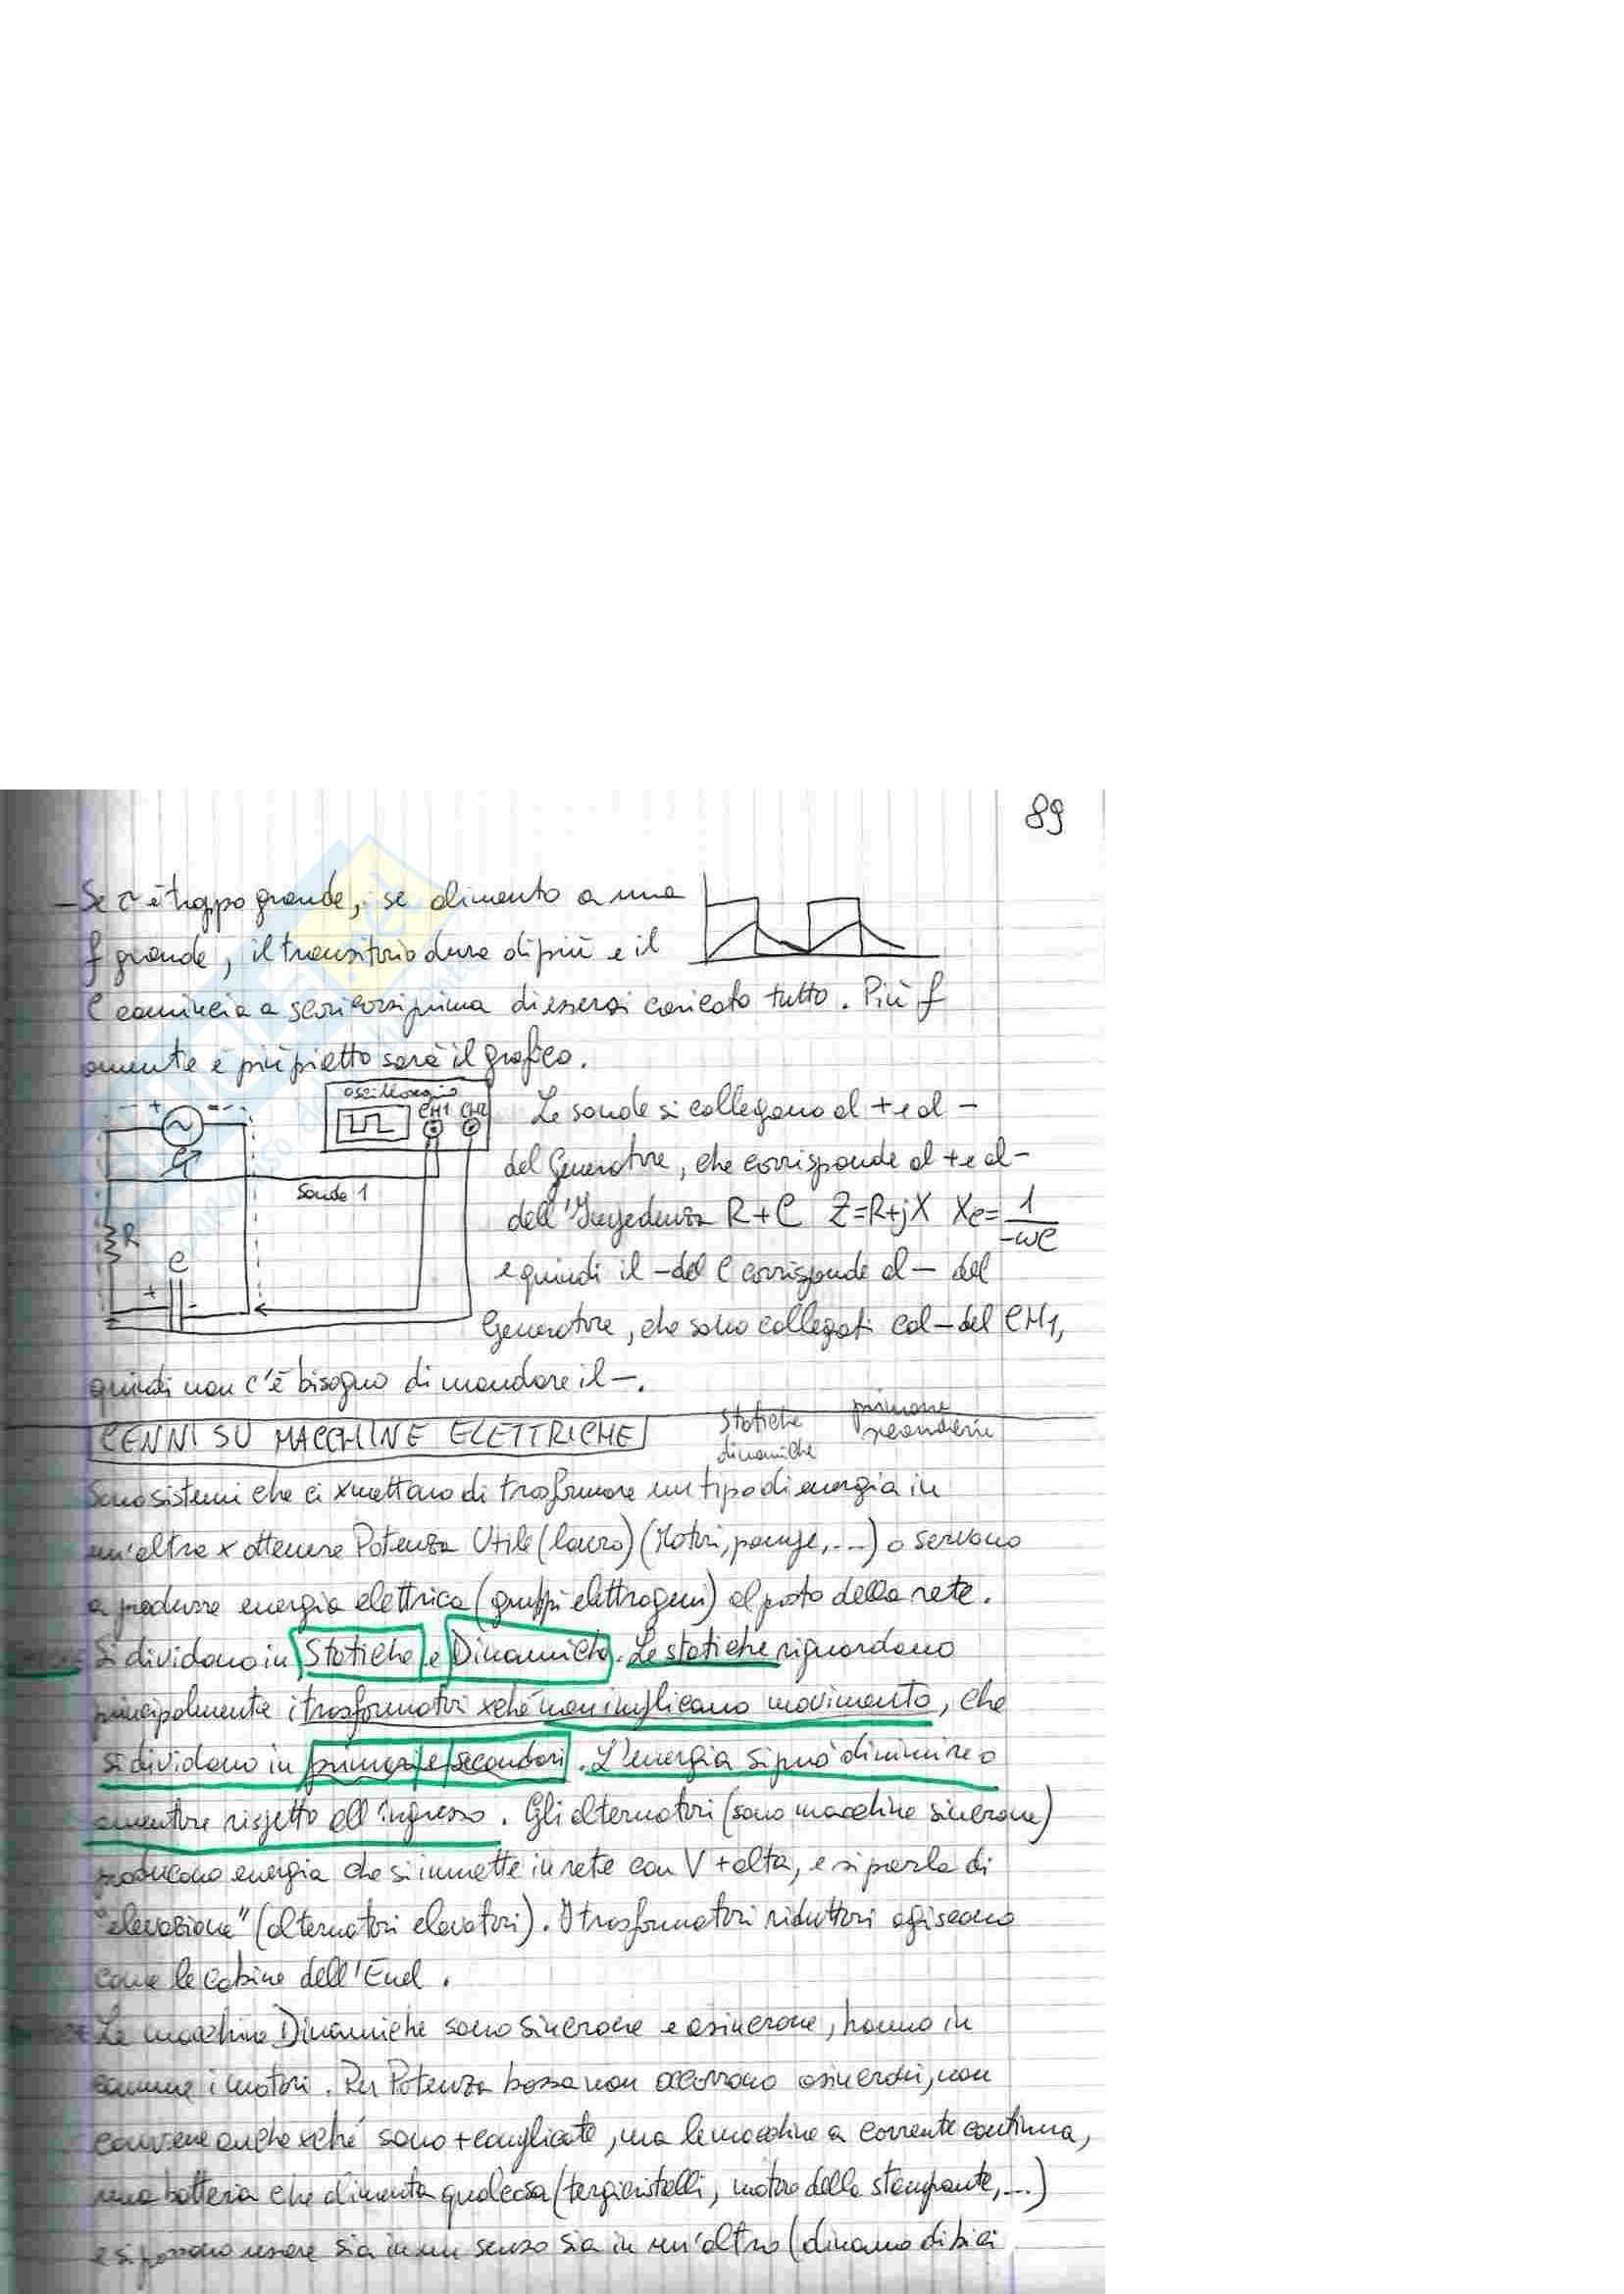 89
- Se τ è troppo grande, se alimento a una
f grande, il transitorio dura di più e il
C comincia a scaricarsi prima di essersi caricato tutto. Più f
aumenta e più piatto sarà il grafico.
oscilloscopio
CH1 CH2
+ -
~
G
Sonda 1
R
C
+ -
Le sonde si collegano al + e al -
del Generatore, che corrisponde al + e al -
dell'Impedenza R+C Z=R+jX Xc= 1/-ωC
e quindi il - del C corrisponde al - del
Generatore, che sono collegati col - del CH1,
quindi non c'è bisogno di mandare il -.
CENNI SU MACCHINE ELETTRICHE
statiche
dinamiche
primarie
secondarie
Sono sistemi che ci xmettano di trasformare un tipo di energia in
un'altra x ottenere Potenza Utile (lavoro) (Motori, pompe, ...) o servono
a produrre energia elettrica (gruppi elettrogeni) al posto della rete.
Si dividono in Statiche e Dinamiche. Le statiche riguardano
principalmente i trasformatori xché non implicano movimento, che
si dividono in primari e secondari. L'energia si può diminuire o
aumentare rispetto all'ingresso. Gli alternatori (sono macchine sincrone)
producono energia che si immette in rete con V + alta, e si parla di
"elevazione" (alternatori elevatori). I trasformatori riduttori agiscono
come le cabine dell'Enel.
Le macchine Dinamiche sono sincrone e asincrone, hanno in
comune i motori. Per Potenza bassa non occorrono asincroni, non
conviene anche xché sono + complicate, ma le macchine a corrente continua,
una batteria che alimenta qualcosa (tergicristalli, motore della stampante, ...)
e si possono usare sia in un senso sia in un'altro (dinamo di bici